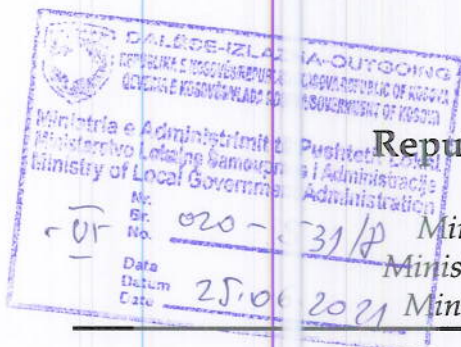 DALËSE-IZLAZNA-OUTGOING
REPUBLIKA E KOSOVËS REPUBLIKA KOSOVA REPUBLIC OF KOSOVA
QEVERIA E KOSOVËS VLADA KOSOVA GOVERNMENT OF KOSOVA
Ministria e Administrimit të Pushtetit Lokal
Ministarstvo Lokalne Samouprave i Administracije
Ministry of Local Government Administration
Repu
Nr.
Br.
No. 020 - 31/8
Min
Data
Datum
Date 25.06 2021
Minis
Min